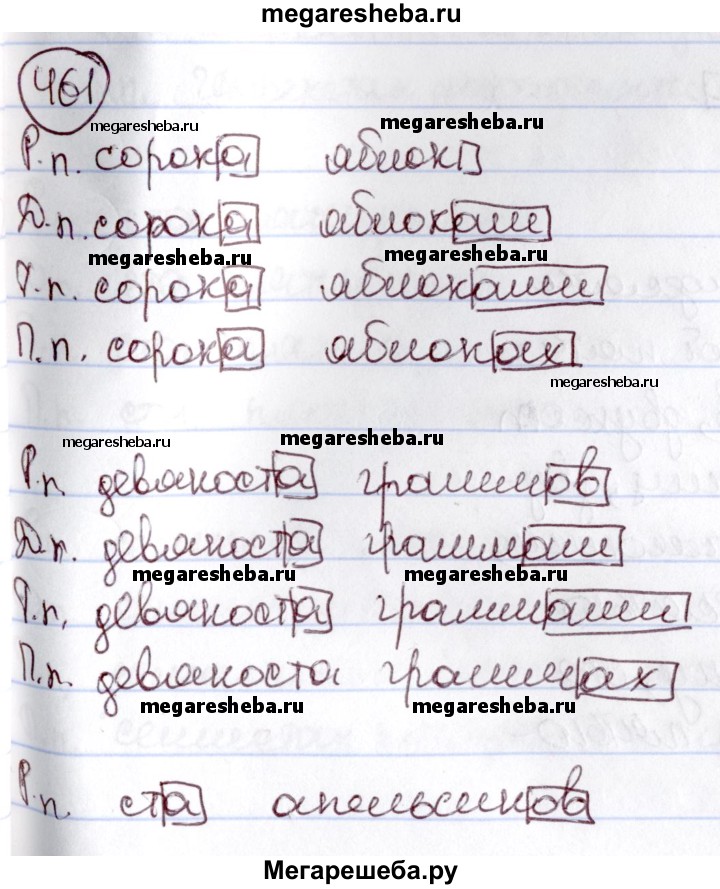 megaresheba.ru
461
megaresheba.ru
megaresheba.ru
Р.п. сорока яблок
Д.п. сорока яблокам
megaresheba.ru
megaresheba.ru
Т.п. сорока яблоками
П.п. сорока яблоках
megaresheba.ru
megaresheba.ru
megaresheba.ru
Р.п. девяноста граммов
Д.п. девяноста граммам
megaresheba.ru
megaresheba.ru
Т.п. девяноста граммами
П.п. девяноста граммах
megaresheba.ru
megaresheba.ru
Р.п. ста апельсинов
Мегарешеба.ру